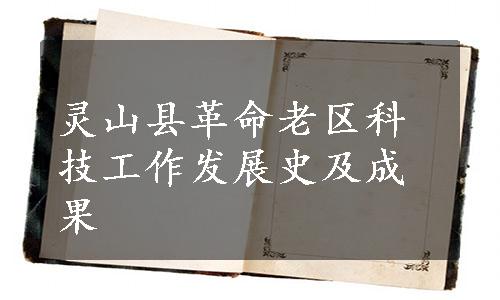 灵山县革命老区科
技工作发展史及成
果